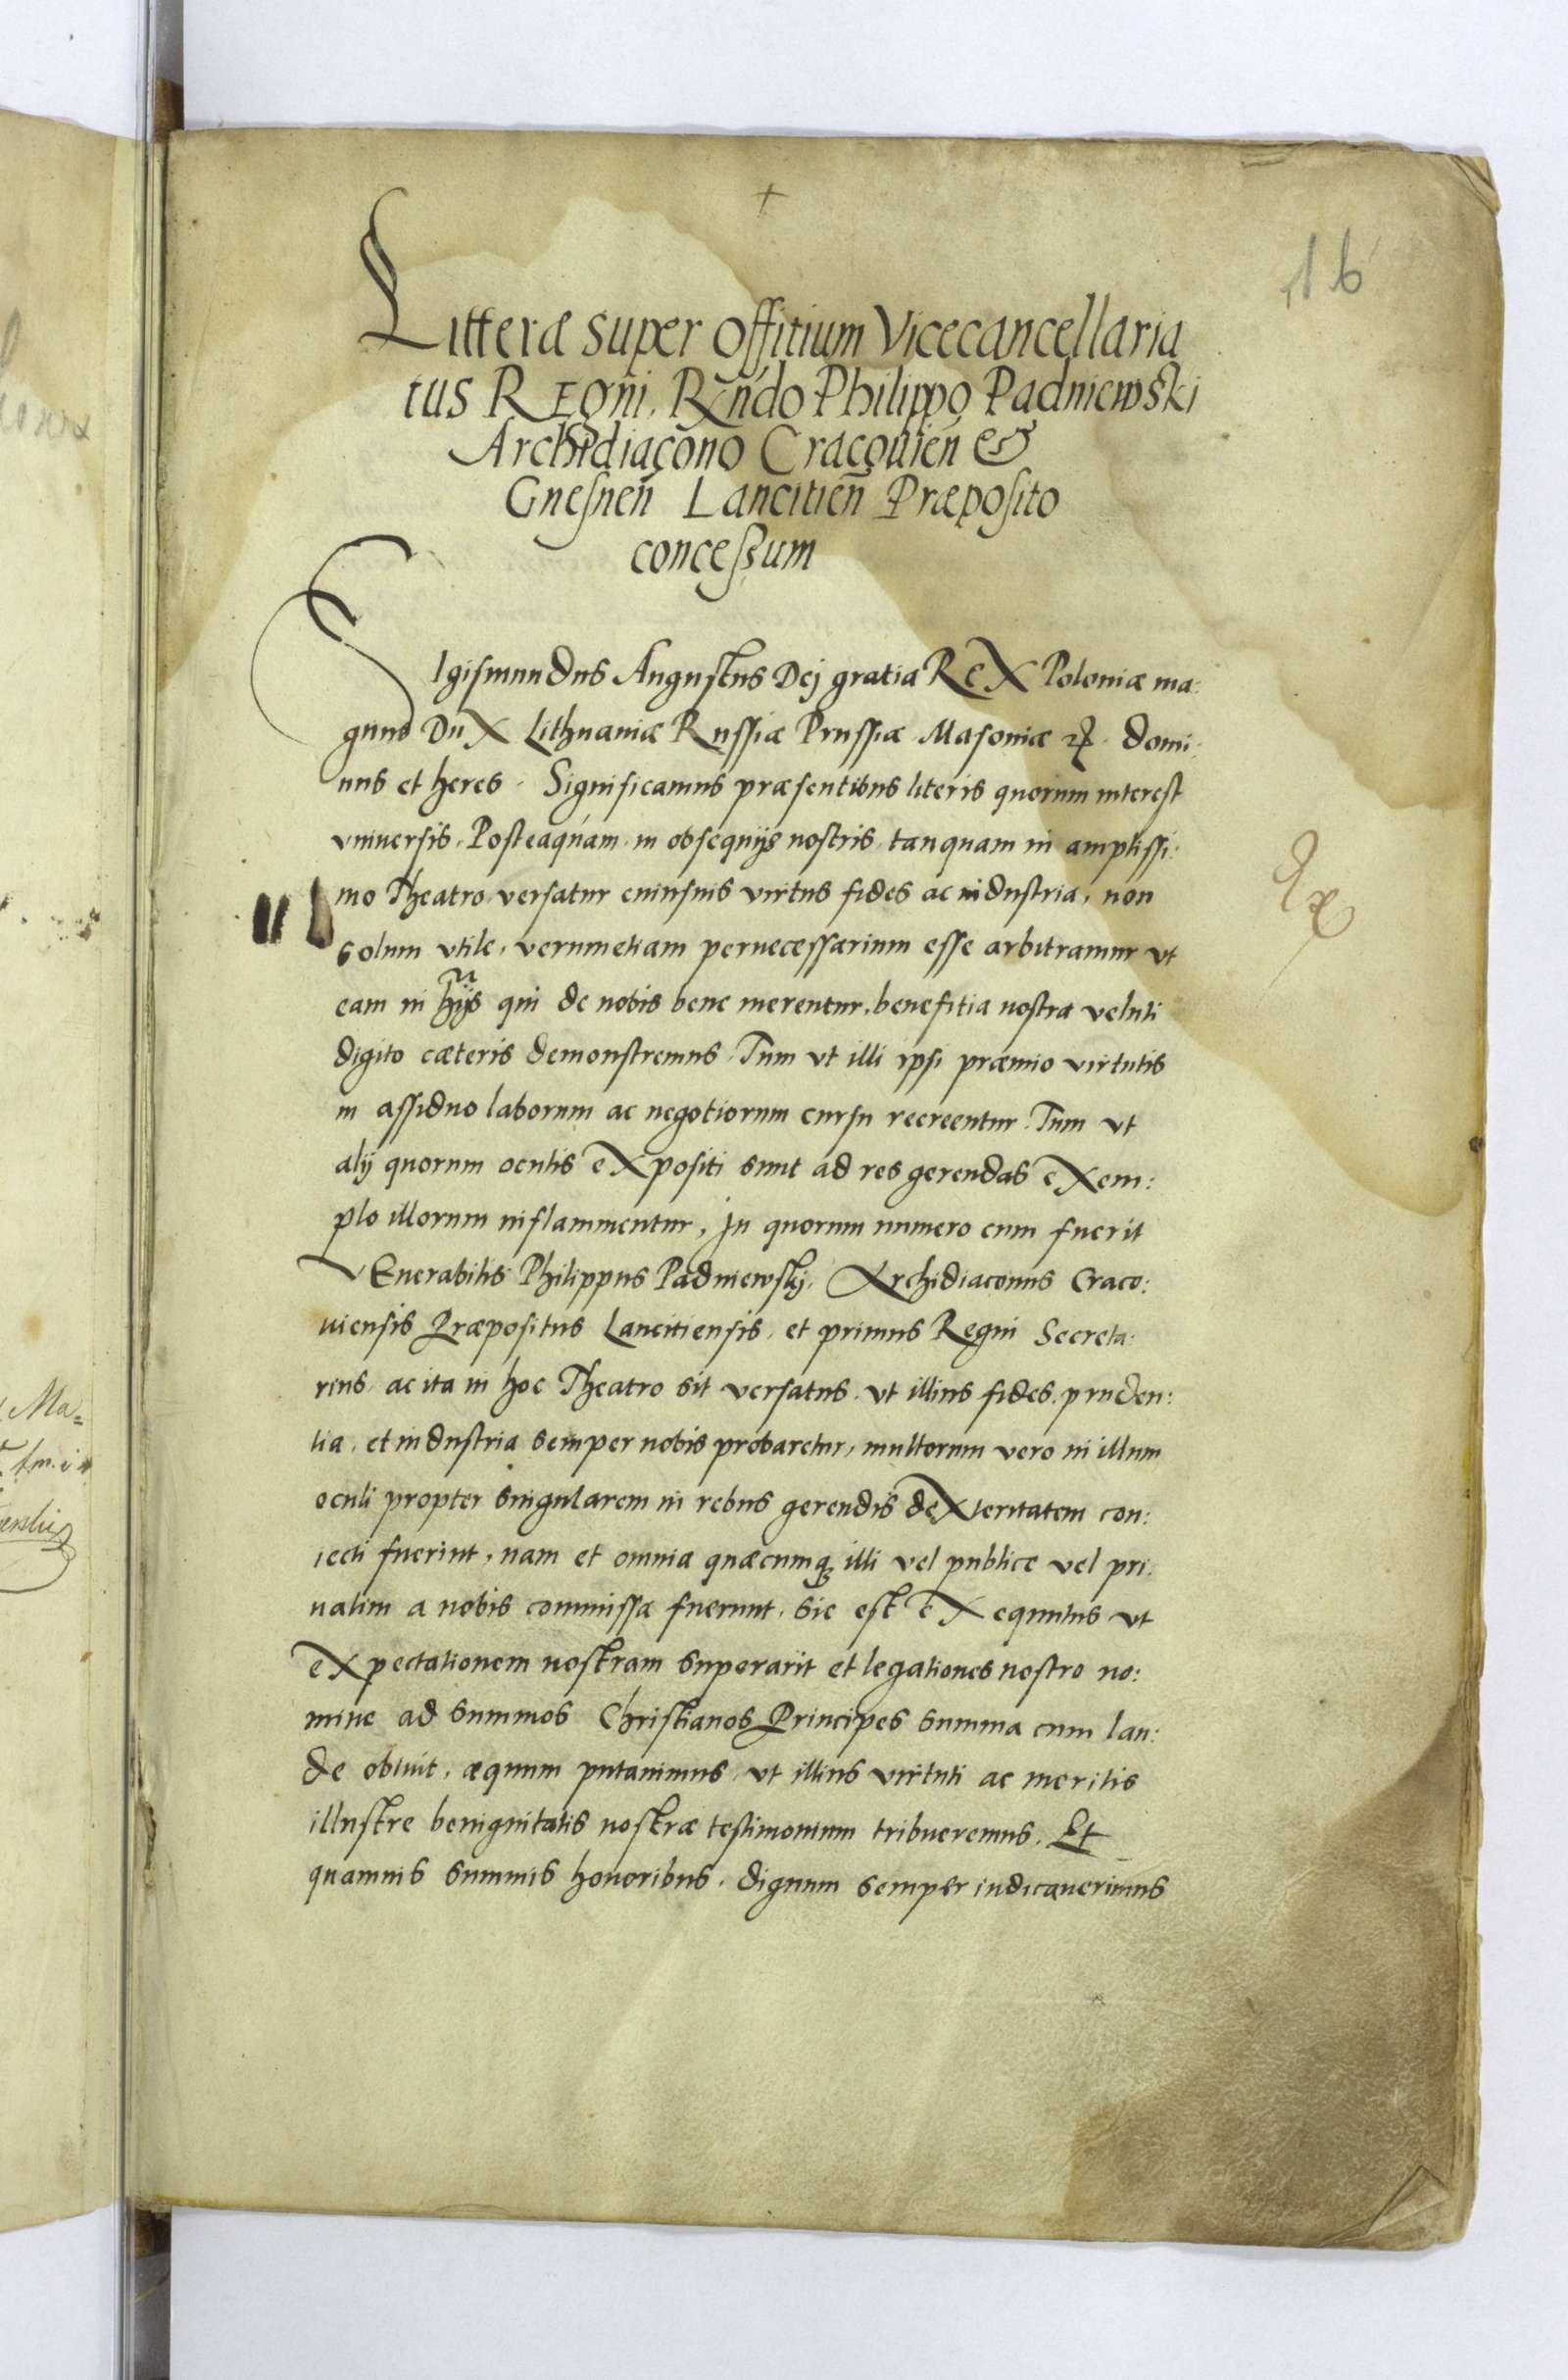 16
Litteræ super offitium Vicecancellaria
tus Regni. Rndo Philippo Padniewski
Archidiacono Cracouien &
Gnesnen Lancitien Præposito
conceßum
Sigismundus Augustus Dej gratia Rex Poloniæ ma:
gnus Dux Lithuaniæ Russiæ Prussiæ Masoniæ &. domi:
nus et heres. Significamus præsentibus literis quorum interest
vniuersis. Posteaquam in obsequijs nostris tanquam in amplissi:
mo Theatro versatur cuiusuis virtus fides ac industria, non
solum vtile, verumetiam pernecessarium esse arbitramur vt
eam in hijs qui de nobis bene merentur, benefitia nostra veluti
digito cæteris demonstremus. Tum vt illi ipsi præmio virtutis
in assiduo laborum ac negotiorum cursu recreentur. Tum vt
alij quorum oculis expositi sunt ad res gerendas exem:
plo illorum inflammentur. In quorum numero cum fuerit
Venerabilis Philippus Padniewskj, Archidiaconus Craco:
uiensis Præpositus Lancitiensis, et primus Regni Secreta:
rius, ac ita in hoc Theatro sit versatus, vt illius fides, pruden:
tia, et industria semper nobis probaretur, multorum vero in illum
oculi propter singularem in rebus gerendis dexteritatem con:
iecti fuerint, nam et omnia quæcumq illi vel publice vel pri:
uatim a nobis commissa fuerunt, sic est exequutus vt
expectationem nostram superarit et legationes nostro no:
mine ad summos Christianos Principes summa cum lau:
de obiuit, æquum putauimus, vt illius virtuti ac meritis
illustre benignitatis nostræ testimonium tribueremus. Et
quamuis summis honoribus, dignum semper iudicauerimus
Ma=